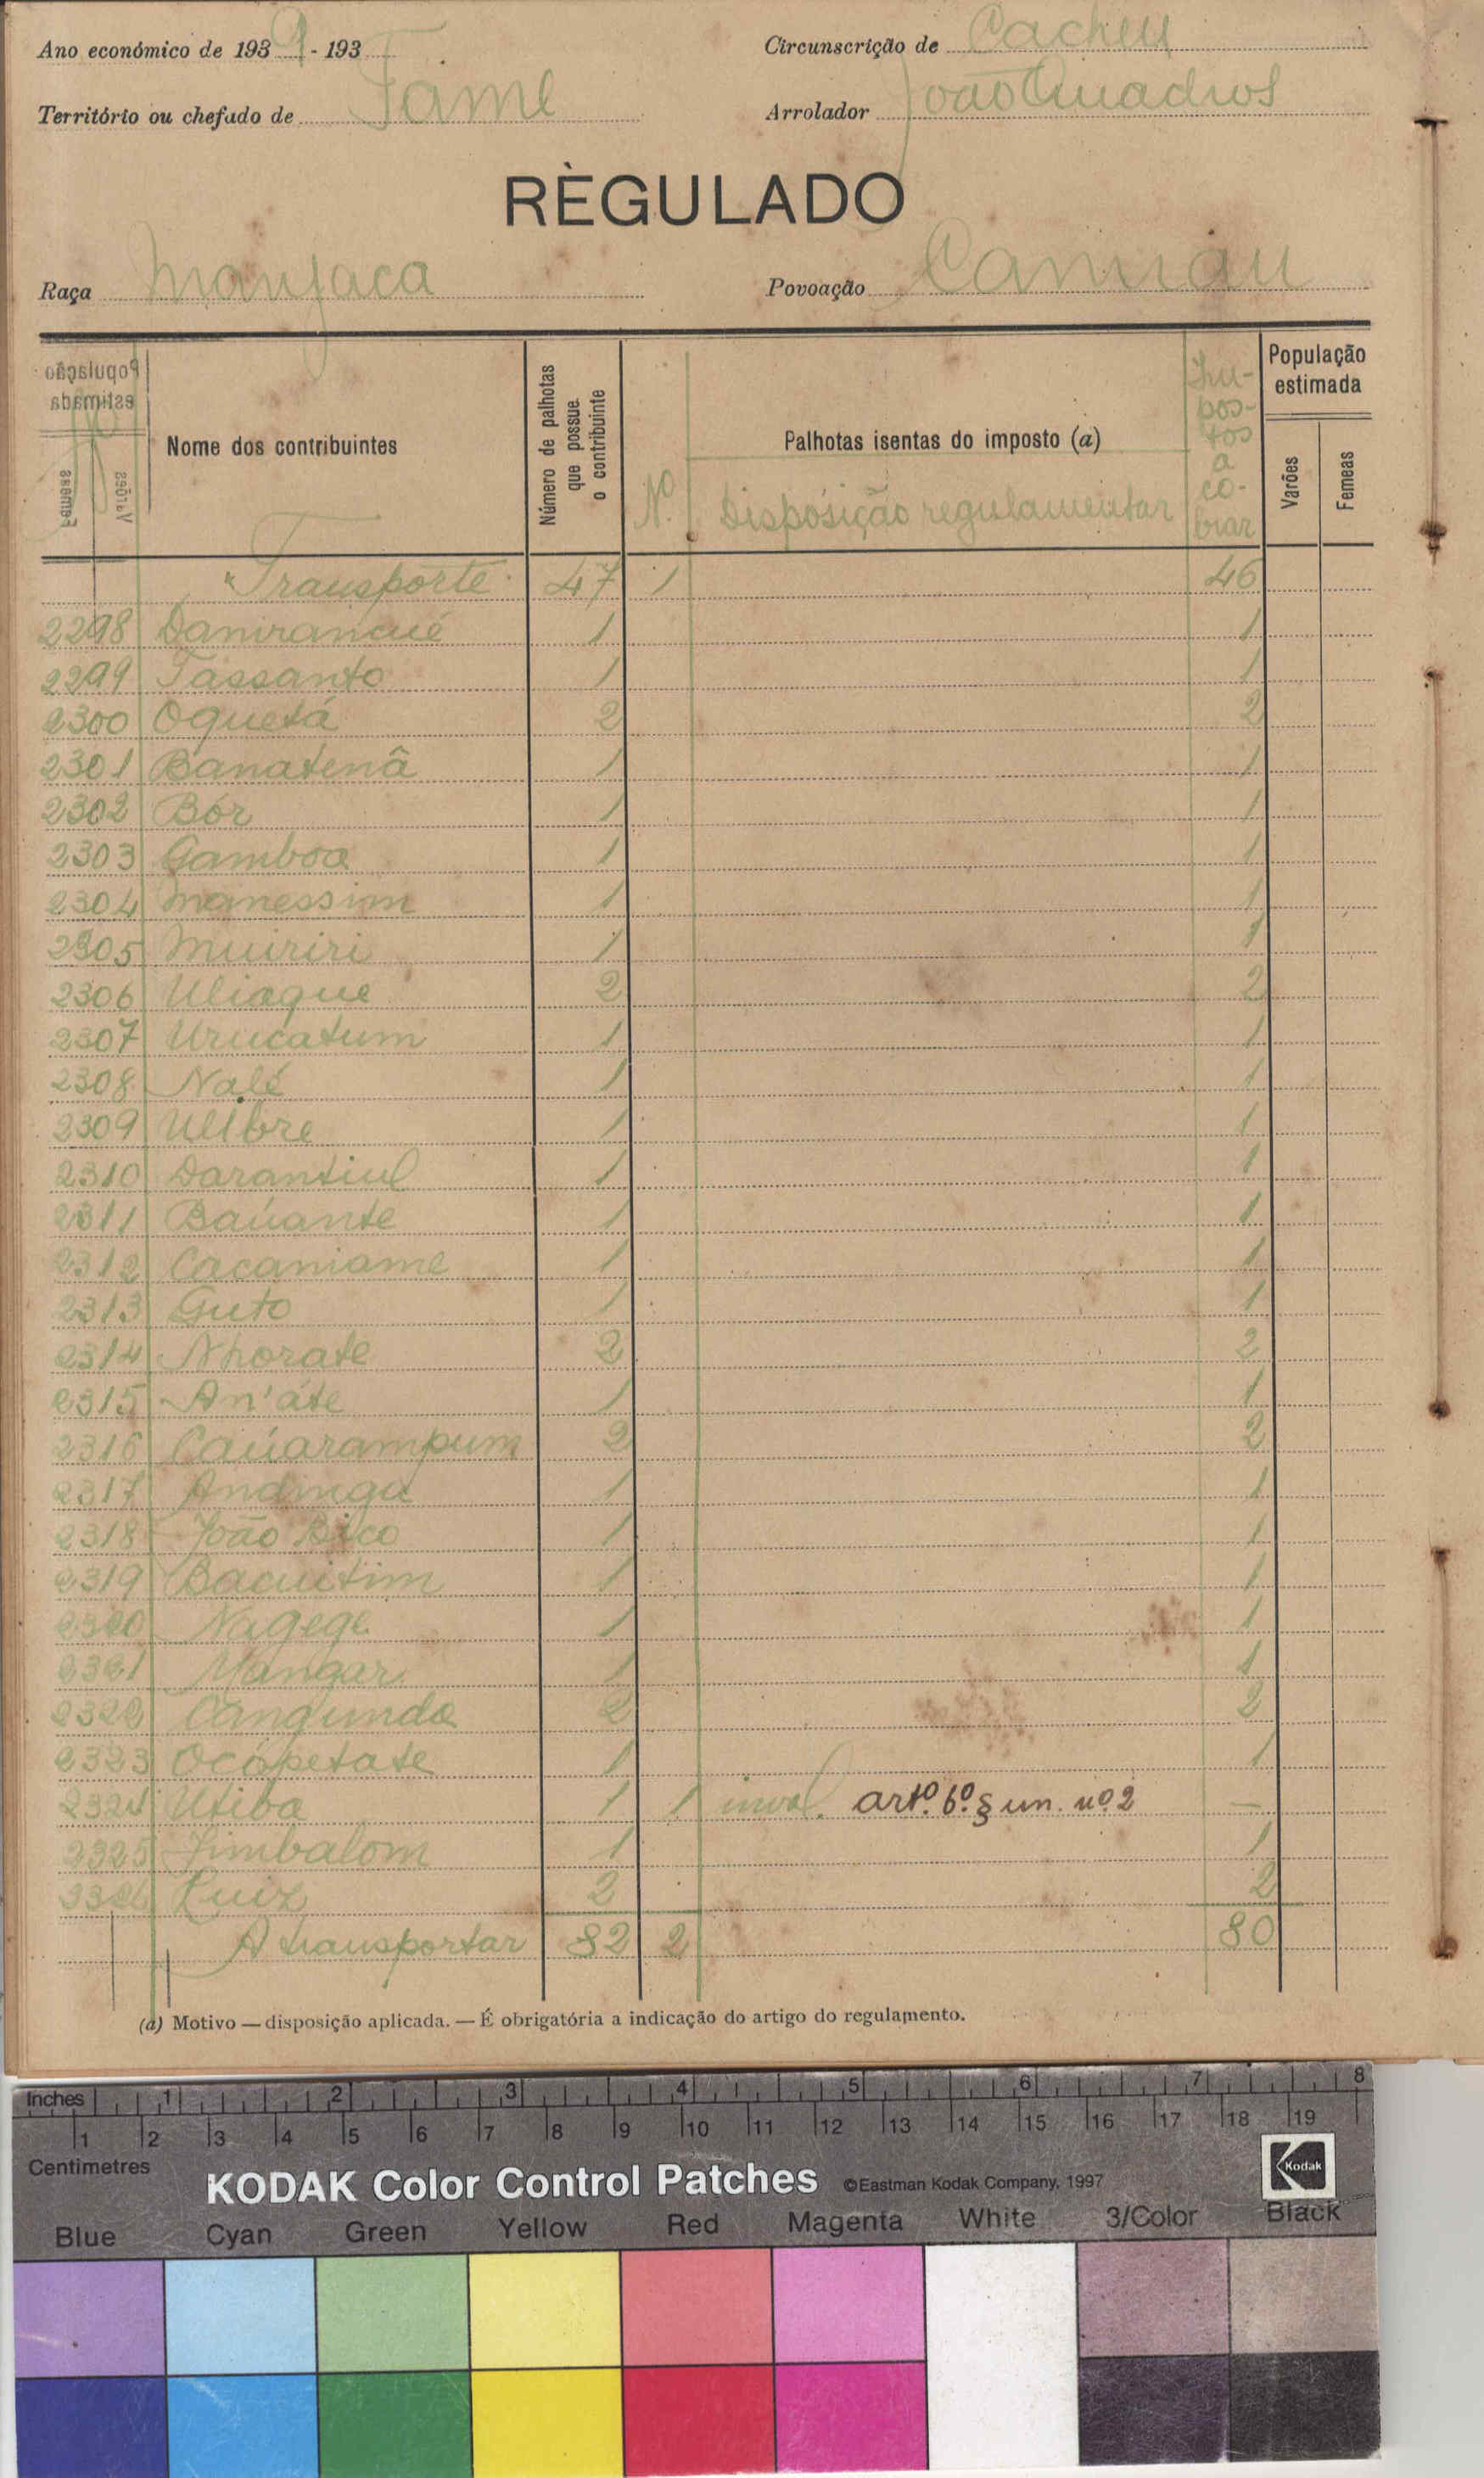 Ano económico de 1939-193
Circunscrição de Cacheu
Território ou chefado de Tame
Arrolador João Quadros
RÈGULADO
Raça Manjaca
Povoação Caniau
População estimada
Femeas
Varões
Nome dos contribuintes
Número de palhotas que possue o contribuinte
Palhotas isentas do imposto (a)
N.º
Disposição regulamentar
Impostos a cobrar
População estimada
Varões
Femeas
Transporte 47 1 46
2298 Daniranqué 1 1
2299 Tassanto 1 1
2300 Oquetá 2 2
2301 Banatenâ 1 1
2302 Bór 1 1
2303 Gamboa 1 1
2304 Manessim 1 1
2305 Muiriri 1 1
2306 Uliaque 2 2
2307 Urucatum 1 1
2308 Nalé 1 1
2309 Ulibre 1 1
2310 Darantiul 1 1
2311 Baúante 1 1
2312 Cacaniame 1 1
2313 Guto 1 1
2314 Nhorate 2 2
2315 An'áte 1 1
2316 Caúarampum 2 2
2317 Andinga 1 1
2318 João Bico 1 1
2319 Bacuitim 1 1
2320 Nagege 1 1
2321 Mangar 1 1
2322 Cangunda 2 2
2323 Ocópetate 1 1
2324 Utiba 1 1 inval. artº. 6º. § un. nº 2 —
2325 Jimbalom 1 1
2326 Luiz 2 2
A transportar 82 2 80
(a) Motivo — disposição aplicada. — É obrigatória a indicação do artigo do regulamento.
Inches 1 2 3 4 5 6 7 8
1 2 3 4 5 6 7 8 9 10 11 12 13 14 15 16 17 18 19
Centimetres
KODAK Color Control Patches ©Eastman Kodak Company, 1997 Kodak
Blue Cyan Green Yellow Red Magenta White 3/Color Black